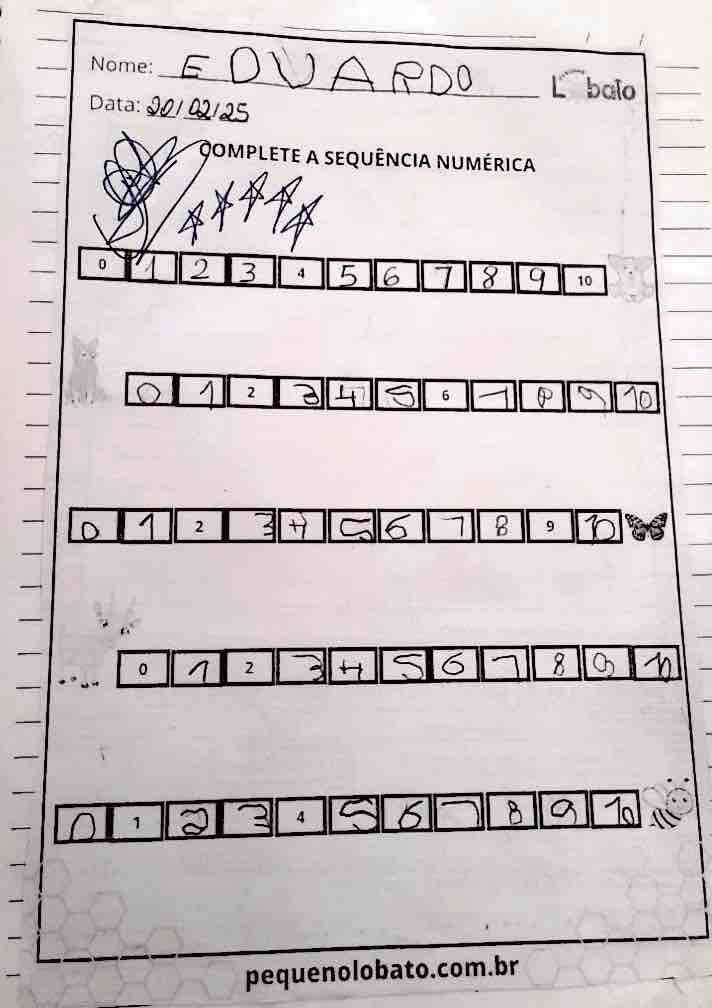 Nome: EDUARDO
Lobato
Data: 20/02/25
COMPLETE A SEQUÊNCIA NUMÉRICA
0 1 2 3 4 5 6 7 8 9 10
0 1 2 3 4 5 6 7 8 9 10
0 1 2 3 4 5 6 7 8 9 10
0 1 2 3 4 5 6 7 8 9 10
0 1 2 3 4 5 6 7 8 9 10
pequenolobato.com.br